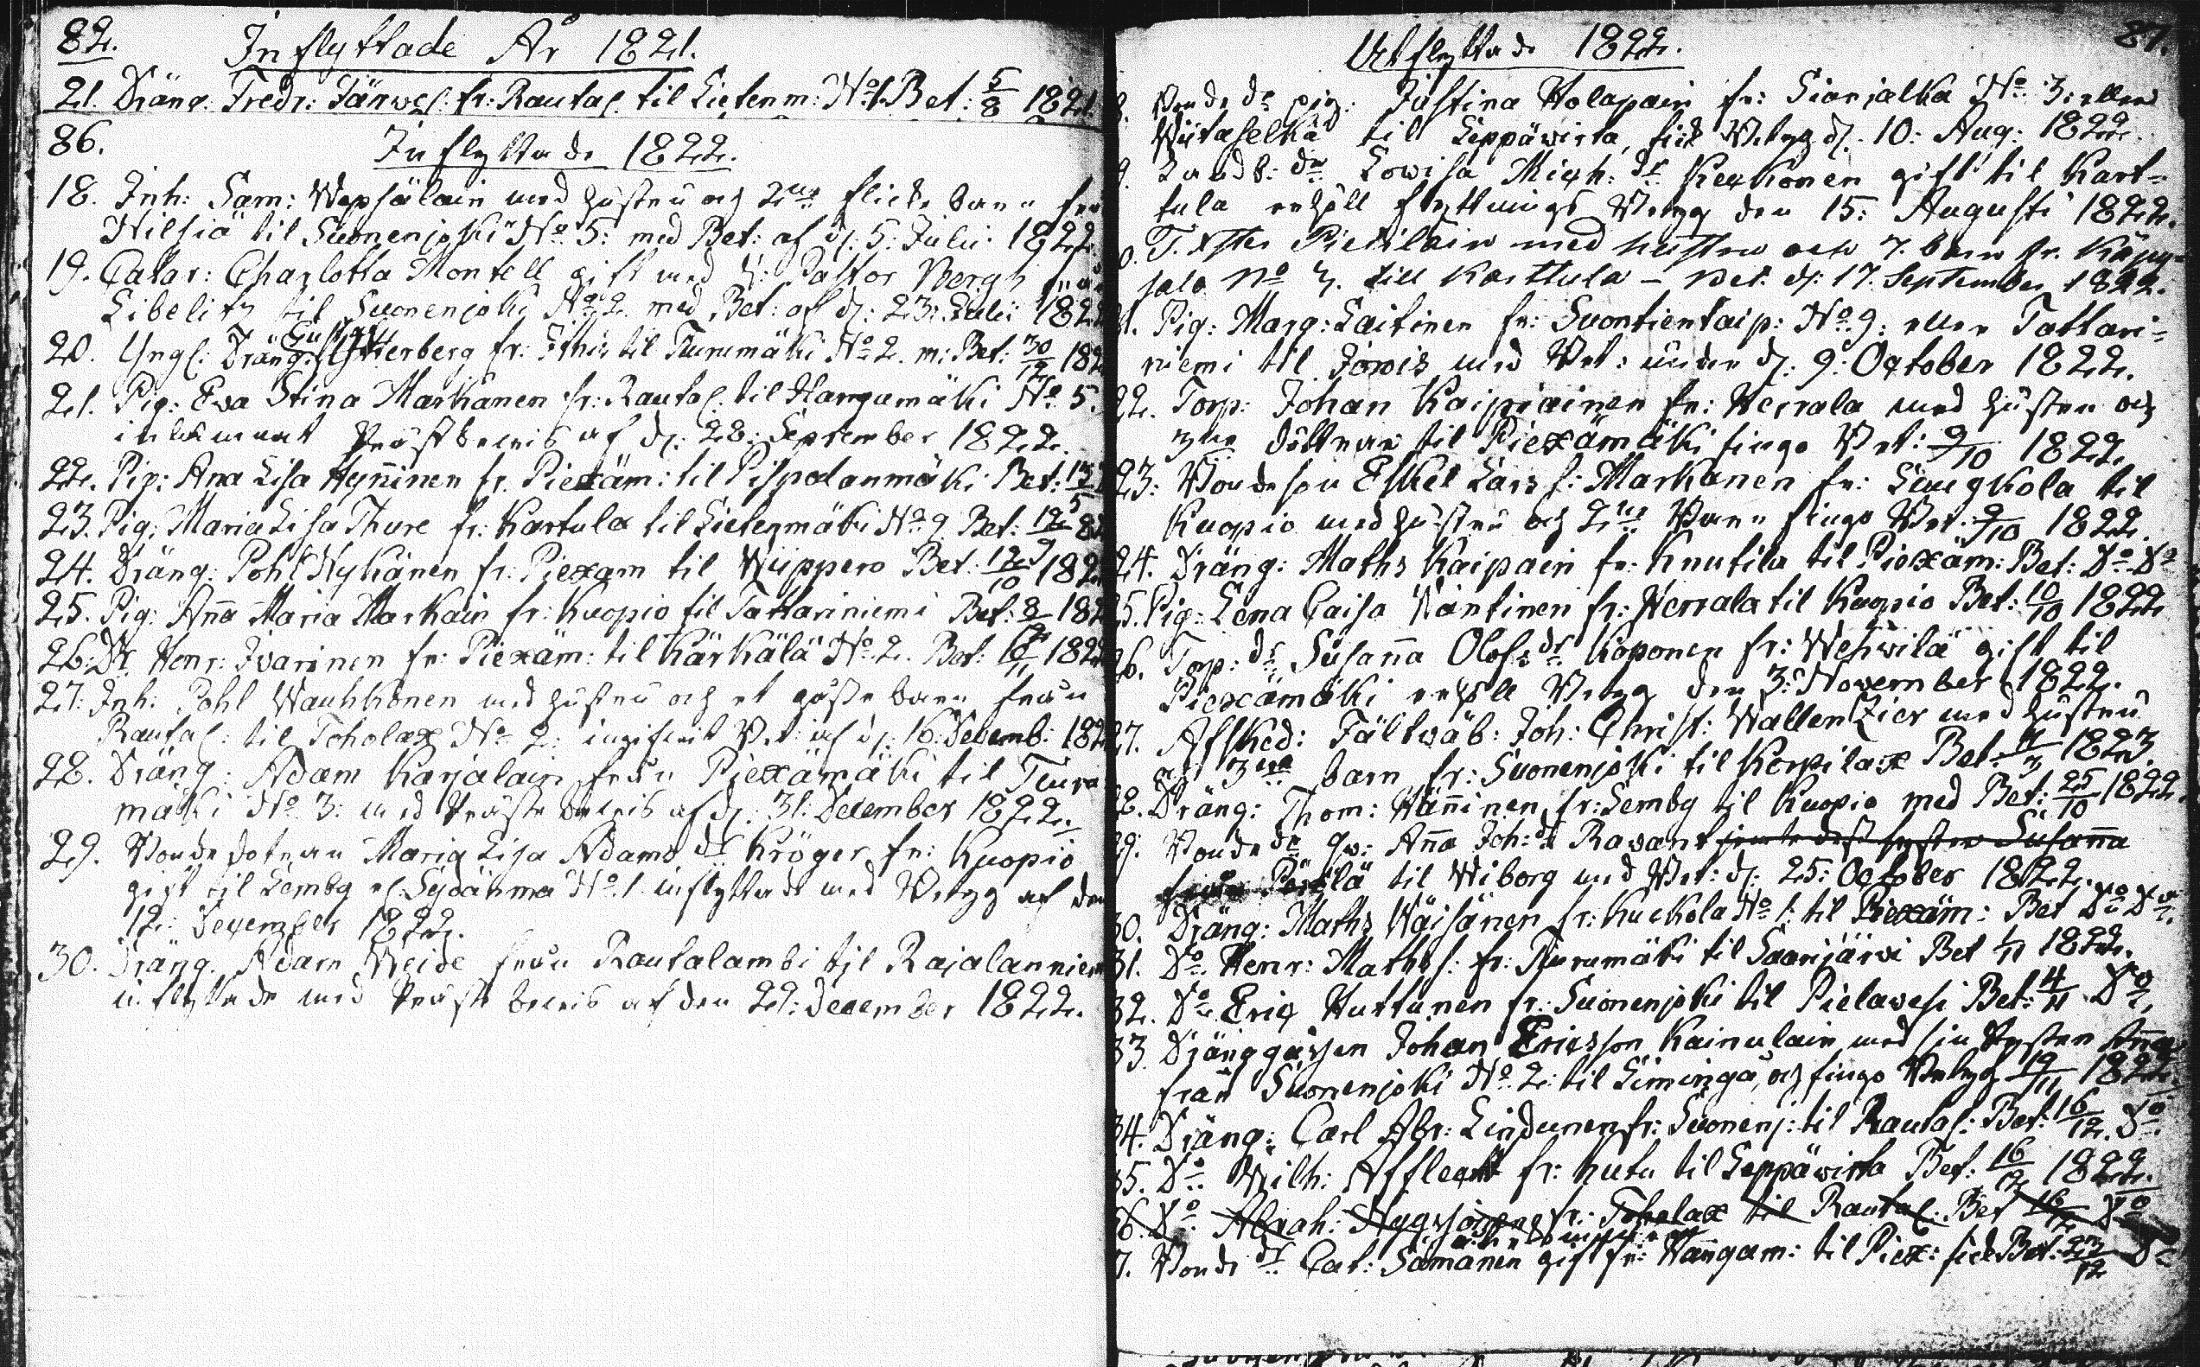 82.
Inflyttade År 1821.
21. Dräng: Fredr: Tarvel: fr: Rautal. til Lietenm: No 1. Bet: 5/8 1821.
86.
Inflyttade 1822.
18. Inh: Sam: Wepsäläin med hustru och 2ne flicke barn
Nilsiä til Suonenjoki No 5: med Bet: af d: 5: Julii 1822.
19. Catar: Charlotta Montell gift med h: Pastor Bergh
Libelitz til Suonenjoki No 2 med Bet: af d: 23: Julii 182
20. Yngl: Dräng: Gustav fr: til Tuurumäki No 2. m: Bet: 30/12 182
21. Pig: Eva Stina Markanen fr: Rautal. til Hangamäki No 5.
inlemnat Prästbevis af d: 28: September 1822.
22. Pig: Ana Lisa Hynninen fr. Piexäm: til Pispodanmäki Bet:
23. Pig: Maria Lisa Thure fr: Kartula til Lietezmäki No 9 Bet:
24. Dräng: Pohl Nykänen fr: Piexäm til Wiippero Bet: 12/10 182
25. Pig: Anna Maria Markain fr: Kuopio til Tattariniemi Bet: 182
26. Dr Henr: Ivarinen fr: Piexäm: til Kärkälä No 2. Bet: 182
27. Inh: Pohl Wauhkonen med hustru och et gosse barn från
Rautal: til Toholax No 2: Bet: af d: 16: Decemb: 182
28. Dräng: Adam Karjalain från Piexämäki til Tuuru
mäki No 3: med Präste bevis af d: 31: December 1822.
29. Bonde dotren Maria Lisa Adams dr Kröger fr: Kuopio
gift til Lemby el. Sydänmä No 1 inflyttade med Betyg af den
12: December 1822.
30. Dräng. Adam Weide från Rautalambi til Rajalanniem
inflyttade med Präste bevis af den 29: December 1822.
87.
Utflyttade 1822.
Bonde dr pig: Justina Holapain fr: Sianjalka No 3: eller
Wiitaselkä til Leppävirta, fick Betyg d. 10: Aug: 1822.
Lovisa Mich: dr Kerkonen gift til Kart-
tula erhöll flyttnings Betyg den 15: Augusti 1822.
Pietiläin med hustru och 7. barn fr. Käpy-
jala No 3. till Karttula – Bet. d: 17. September 1822.
Pig: Marg: Laitinen fr: Suontientaip: No 9: eller Tattari-
niemi til Jorois med Bet: under d: 9: October 1822.
22. Torp: Johan Kaipiainen fr: Herrala med hustru och
3ne döttrar til Piexämäki fingo Bet: 9/10 1822.
23. Bondeson Eskel Lars s: Markanen fr: Lingkola til
Kuopio med hustru och 2ne Barn fingo Bet. 9/10 1822.
24. Dräng: Maths Kaipain fr: Knutila til Piexäm: Bet: Do Do
25. Pig: Lena Caisa Väntinen fr: Herrala til Kuopio Bet: 10/10 1822.
26. Torp: dr Susanna Olofs dr Koponen fr: Wehvilä gift til
Piexämäki erhöll Betyg den 3: November 1822.
27. Afsked: Fältwäb: Joh: Christ: Wallenzier med hustru
och 3ne barn fr: Suonenjoki til Korpilax Bet: 1823.
28. Dräng: Thom: Hänninen fr: Lemby til Kuopio med Bet: 25/10 1822.
29. Bonde dr qv: Anna Joh: dr Ravant jemte dess syster Susanna
från Pörölä til Wiborg med Bet: d: 25: October 1822.
30. Dräng: Maths Väisänen fr: Kuckola No 1: til Piexäm: Bet Do Do.
31. Do. Henr: Maths s: fr: Tuurumäki til Saarijärvi Bet 1822.
32. Do Eric Huttunen fr: Suonenjoki til Pielavesi Bet: 4/11 Do.
33. Dränggåssen Johan Ericsson Kainulain med sin syster Anna
från Suonenjoki No 2: til Liminga, och fingo Betyg 19/11 1822.
34. Dräng: Carl Abr: Lindunen fr: Suonenj: til Rautal: Bet: 16/12 Do.
35. Do Wilh: Affleckt fr: Kutu til Leppävirta Bet: 16/12 1822.
36. Do Abrah: fr: Toholax til Rautal. Bet 16/12 Do
7. Bonde dr Cat: Sämänen gift fr: Hangam: til Piex: fick Bet: 23/12 Do